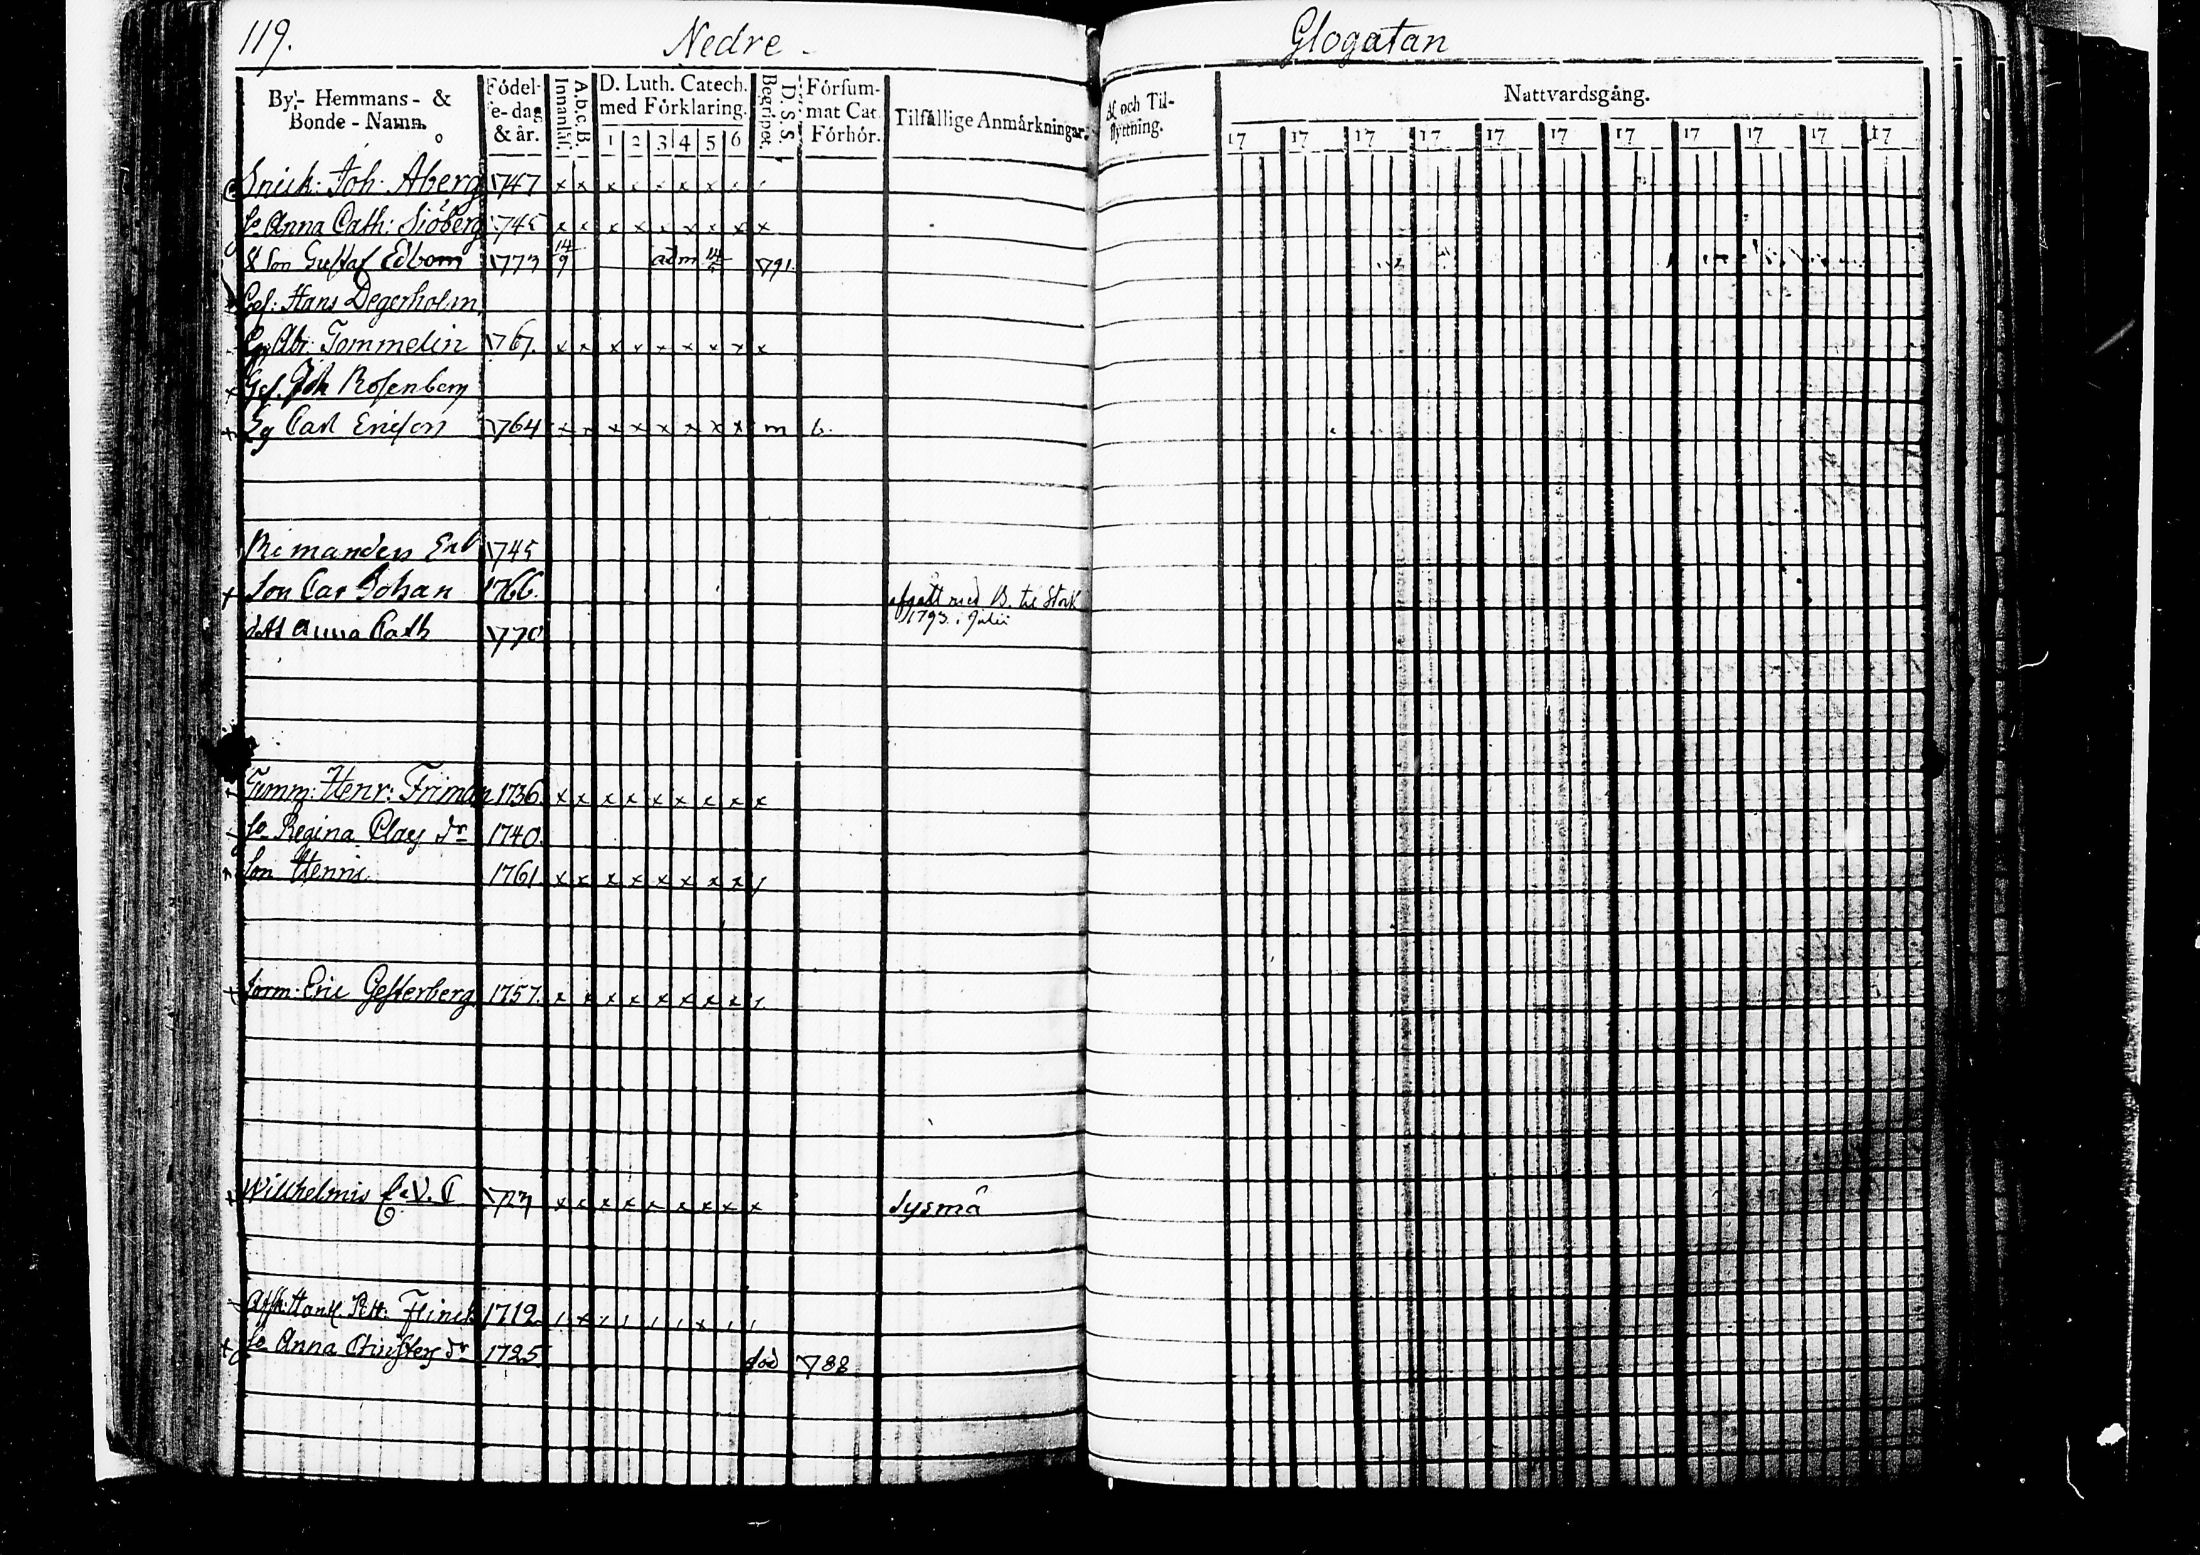 119. Nedre - Glogatan
By,- Hemmans- & Bonde-Namn. Födelse-dag & år. Innanläs. A.b.c.B. D. Luth. Catech. med Förklaring. 1 2 3 4 5 6 D. S. S. Begripet. Försummat Cat. Förhör. Tilfällige Anmärkningar. Af och Tilflyttning. Nattvardsgång.
17 17 17 17 17 17 17 17 17 17 17
Snick: Joh: Åberg 1747 x x x x x x x
h: Anna Cath: Siöberg 1745 x x x x x x x x x
& Son Gustaf Edbom 1773 14/9 adm 14/9 1791.
Ges: Hans Degerholm
Lg Abr: Tommelin 1767. x x x x x x x x x
Ges. Joh Rosenberg
Lg Carl Ericson 1764 x x x x x x x x m b.
Rimanders Enk 1745
Son Car Johan 1766. med B. til Stock
1793. i Julii
dott Anna Cath 1770
Timm: Henr: Friman 1736. x x x x x x x x x
h: Regina Clas dr 1740.
Son Henric 1761 x x x x x x x x y
Eric Gesterberg 1757. x x x x x x x x y
Wilhelmis 1723 x x x x x x x x x Sysmä
Pett: Flinck 1712
h: Anna Christers dr 1725 död 1788